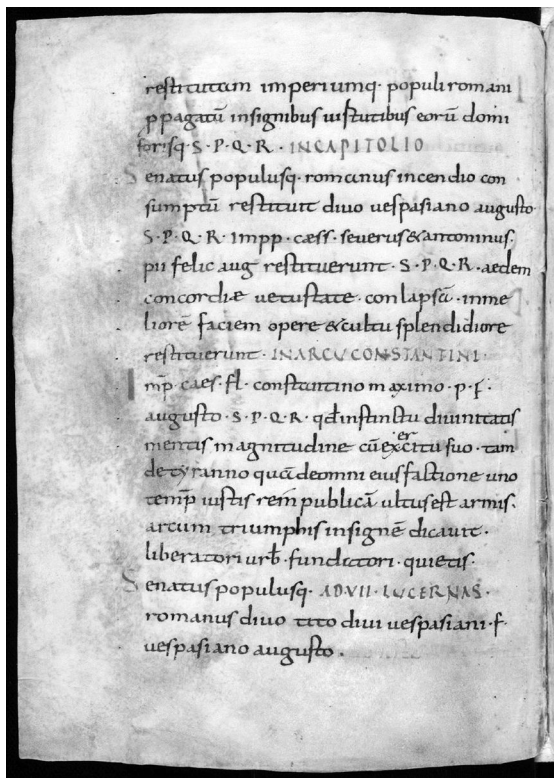 restitutam imperiumq· populi romani
ppagatū insignibus uirtutibus eorū domi
forisq· S·P·Q·R· IN CAPITOLIO
Senatus populusq· romanus incendio con
sumptū restituit diuo uespasiano augusto
S·P·Q·R· impp·caess·seuerus & antoninus·
pii felic aug restituerunt· S·P·Q·R·aedem
concordiæ uetustate·conlapsā·inme
liorē faciem opere & cultu splendidiore
restituerunt· IN ARCV CONSTANTINI·
Imp̄·caes·fl̄·constantino maximo·p·f·
augusto·S·P·Q·R· qd̄ instinctu diuinitatis
mentis magnitudine cū exercitu suo·tam
de tyranno quā de omni eius factione uno
temp̄ iustis rem publicā ultus est armis·
arcum triumphis insignē dicauit·
liberatori urb̄·fundatori·quietis·
Senatus populusq· AD VII·LVCERNAS·
romanus diuo tito diui uespasiani·f·
uespasiano augusto·